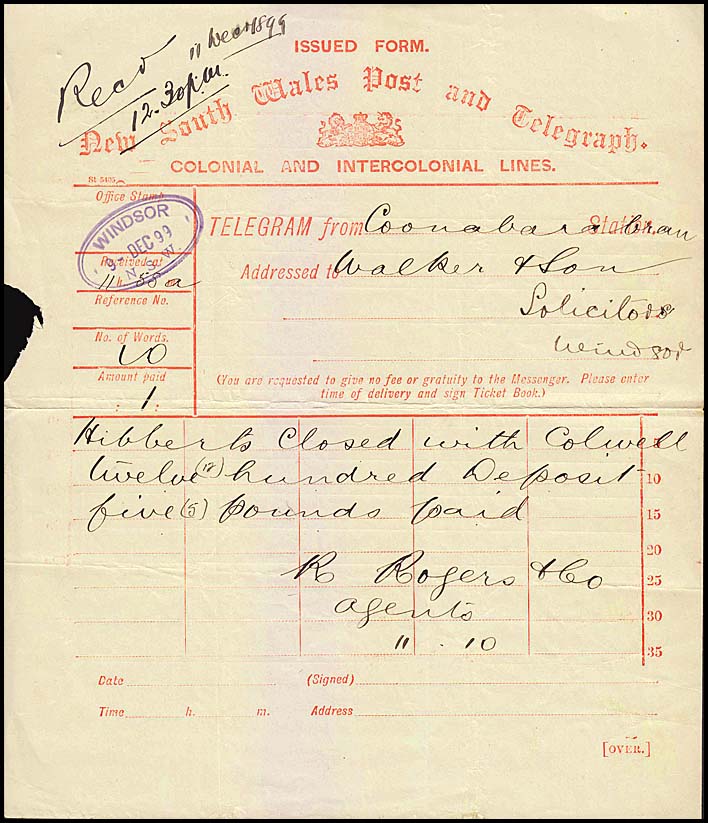 Recd 11 Dec 1899
12.30 p.m.
ISSUED FORM.
New South Wales Post and Telegraph.
COLONIAL AND INTERCOLONIAL LINES.
St 5405
Office Stamp
WINDSOR
DEC 99
N.S.W.
Received at
11 h. 58 a
Reference No.
No. of Words.
10
Amount paid
: 1 :
TELEGRAM from Coonabarabran Station
Addressed to Walker & Son
Solicitors
Windsor
(You are requested to give no fee or gratuity to the Messenger. Please enter
time of delivery and sign Ticket Book.)
Hibberts Closed with Colwell 5
twelve (12) hundred Deposit 10
five (5) pounds paid 15
20
R Rogers & Co 25
agents 30
11 . 10 35
Date (Signed)
Time h. m. Address
[OVER.]